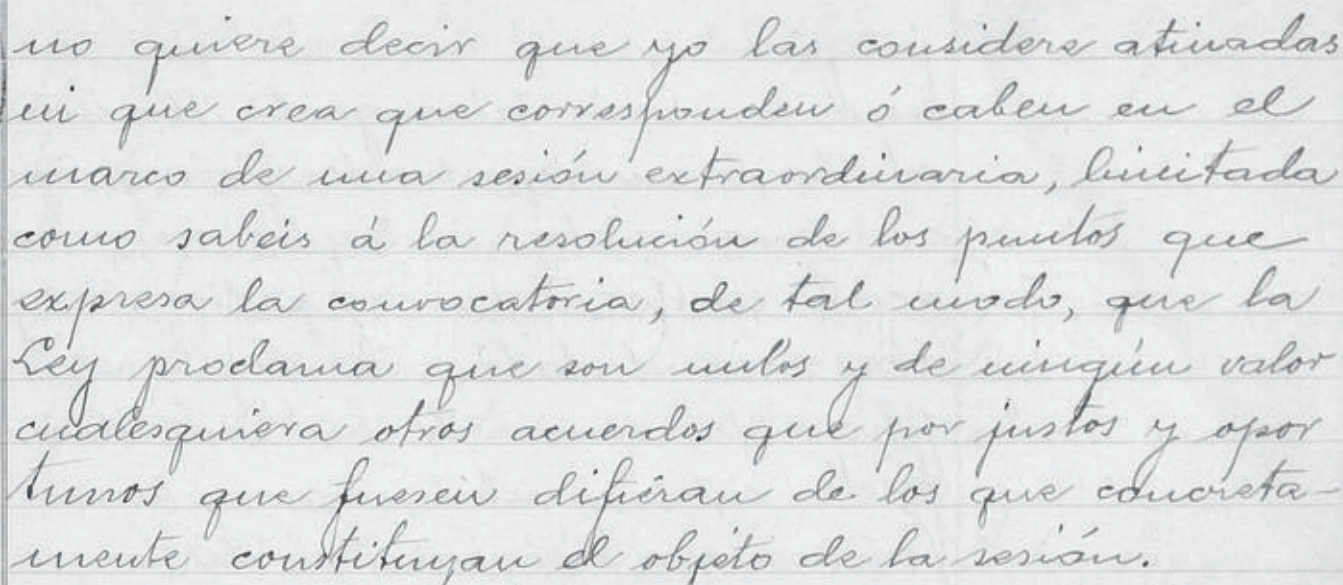 no quiere decir que yo las considere atinadas
ni que crea que corresponden ó caben en el
marco de una sesión extraordinaria, limitada
como sabeis á la resolución de los puntos que
expresa la convocatoria, de tal modo, que la
Ley proclama que son nulos y de ningún valor
cualesquiera otros acuerdos que por justos y opor
tunos que fuesen difiéran de los que concreta-
mente constituyan el objeto de la sesión.